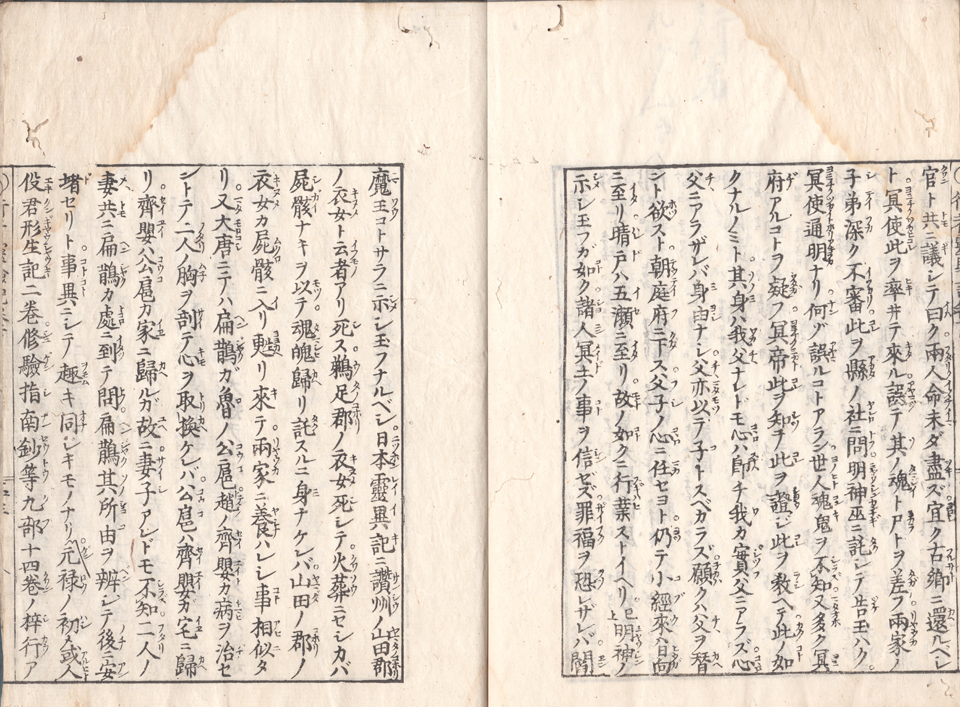 官ト共ニ議シテ曰ク兩人命未ダ盡ズ宜ク古鄕ニ還ルベシ
ト冥使此ヲ率井テ來ル誤テ其ノ魂ト尸トヲ差フ兩家ノ
子弟深ク不審此ヲ縣ノ社ニ問明神巫ニ託シテ告玉ハク
冥使通明ナリ何ゾ誤ルコトアラン世人魂鬼ヲ不知又多ク冥
府アルコトヲ疑フ冥帝此ヲ知テ此ヲ證シ此ヲ敎ヘテ此ノ如
クナルノミト其身ハ我父ナレドモ心ハ卽チ我カ實父ニアラズ心
父ニアラザレバ身由ナシ父亦以テ子トスベカラズ願クハ父ヲ替
ント欲スト朝庭府ニ下ス父子ノ心ニ任セヨト仍テ小經來ハ日向
ニ至リ晴戸ハ五瀬ニ至リ故ノ如クニ行葉ストイヘリ已上明神ノ
示シ玉フガ如ク諸人冥土ノ事ヲ信ゼズ罪福ヲ恐レザレバ閻
魔王コトサラニ示シ玉フナルベシ日本靈異記ニ讚州ノ山田郡
ノ衣女ト云者アリ死ス鵜足郡ノ衣女死シテ火葬ニセシカバ
屍骸ナキヲ以テ魂魄歸リ託スルニ身ナケレバ山田ノ郡ノ
衣女カ屍骸ニ入リ甦リ來テ兩家ニ養ハレシ事相似タ
リ又大唐ニテハ扁鵲ガ魯ノ公扈趙ノ齊嬰カ病ヲ治セ
シトテ二人ノ胸ヲ剖テ心ヲ取換ケレバ公扈ハ齊嬰カ宅ニ歸
リ齊嬰ハ公扈カ家ニ歸ルガ故ニ妻子アレドモ不知二人ノ
妻共ニ扁鵲カ處ニ到テ問扁鵲其所由ヲ辨シテ後ニ安
堵セリト事異ニシテ趣キ同シキモノナリ元禄ノ初メ或人
役君形生記二卷修驗指南鈔等九部十四卷ノ梓行ア